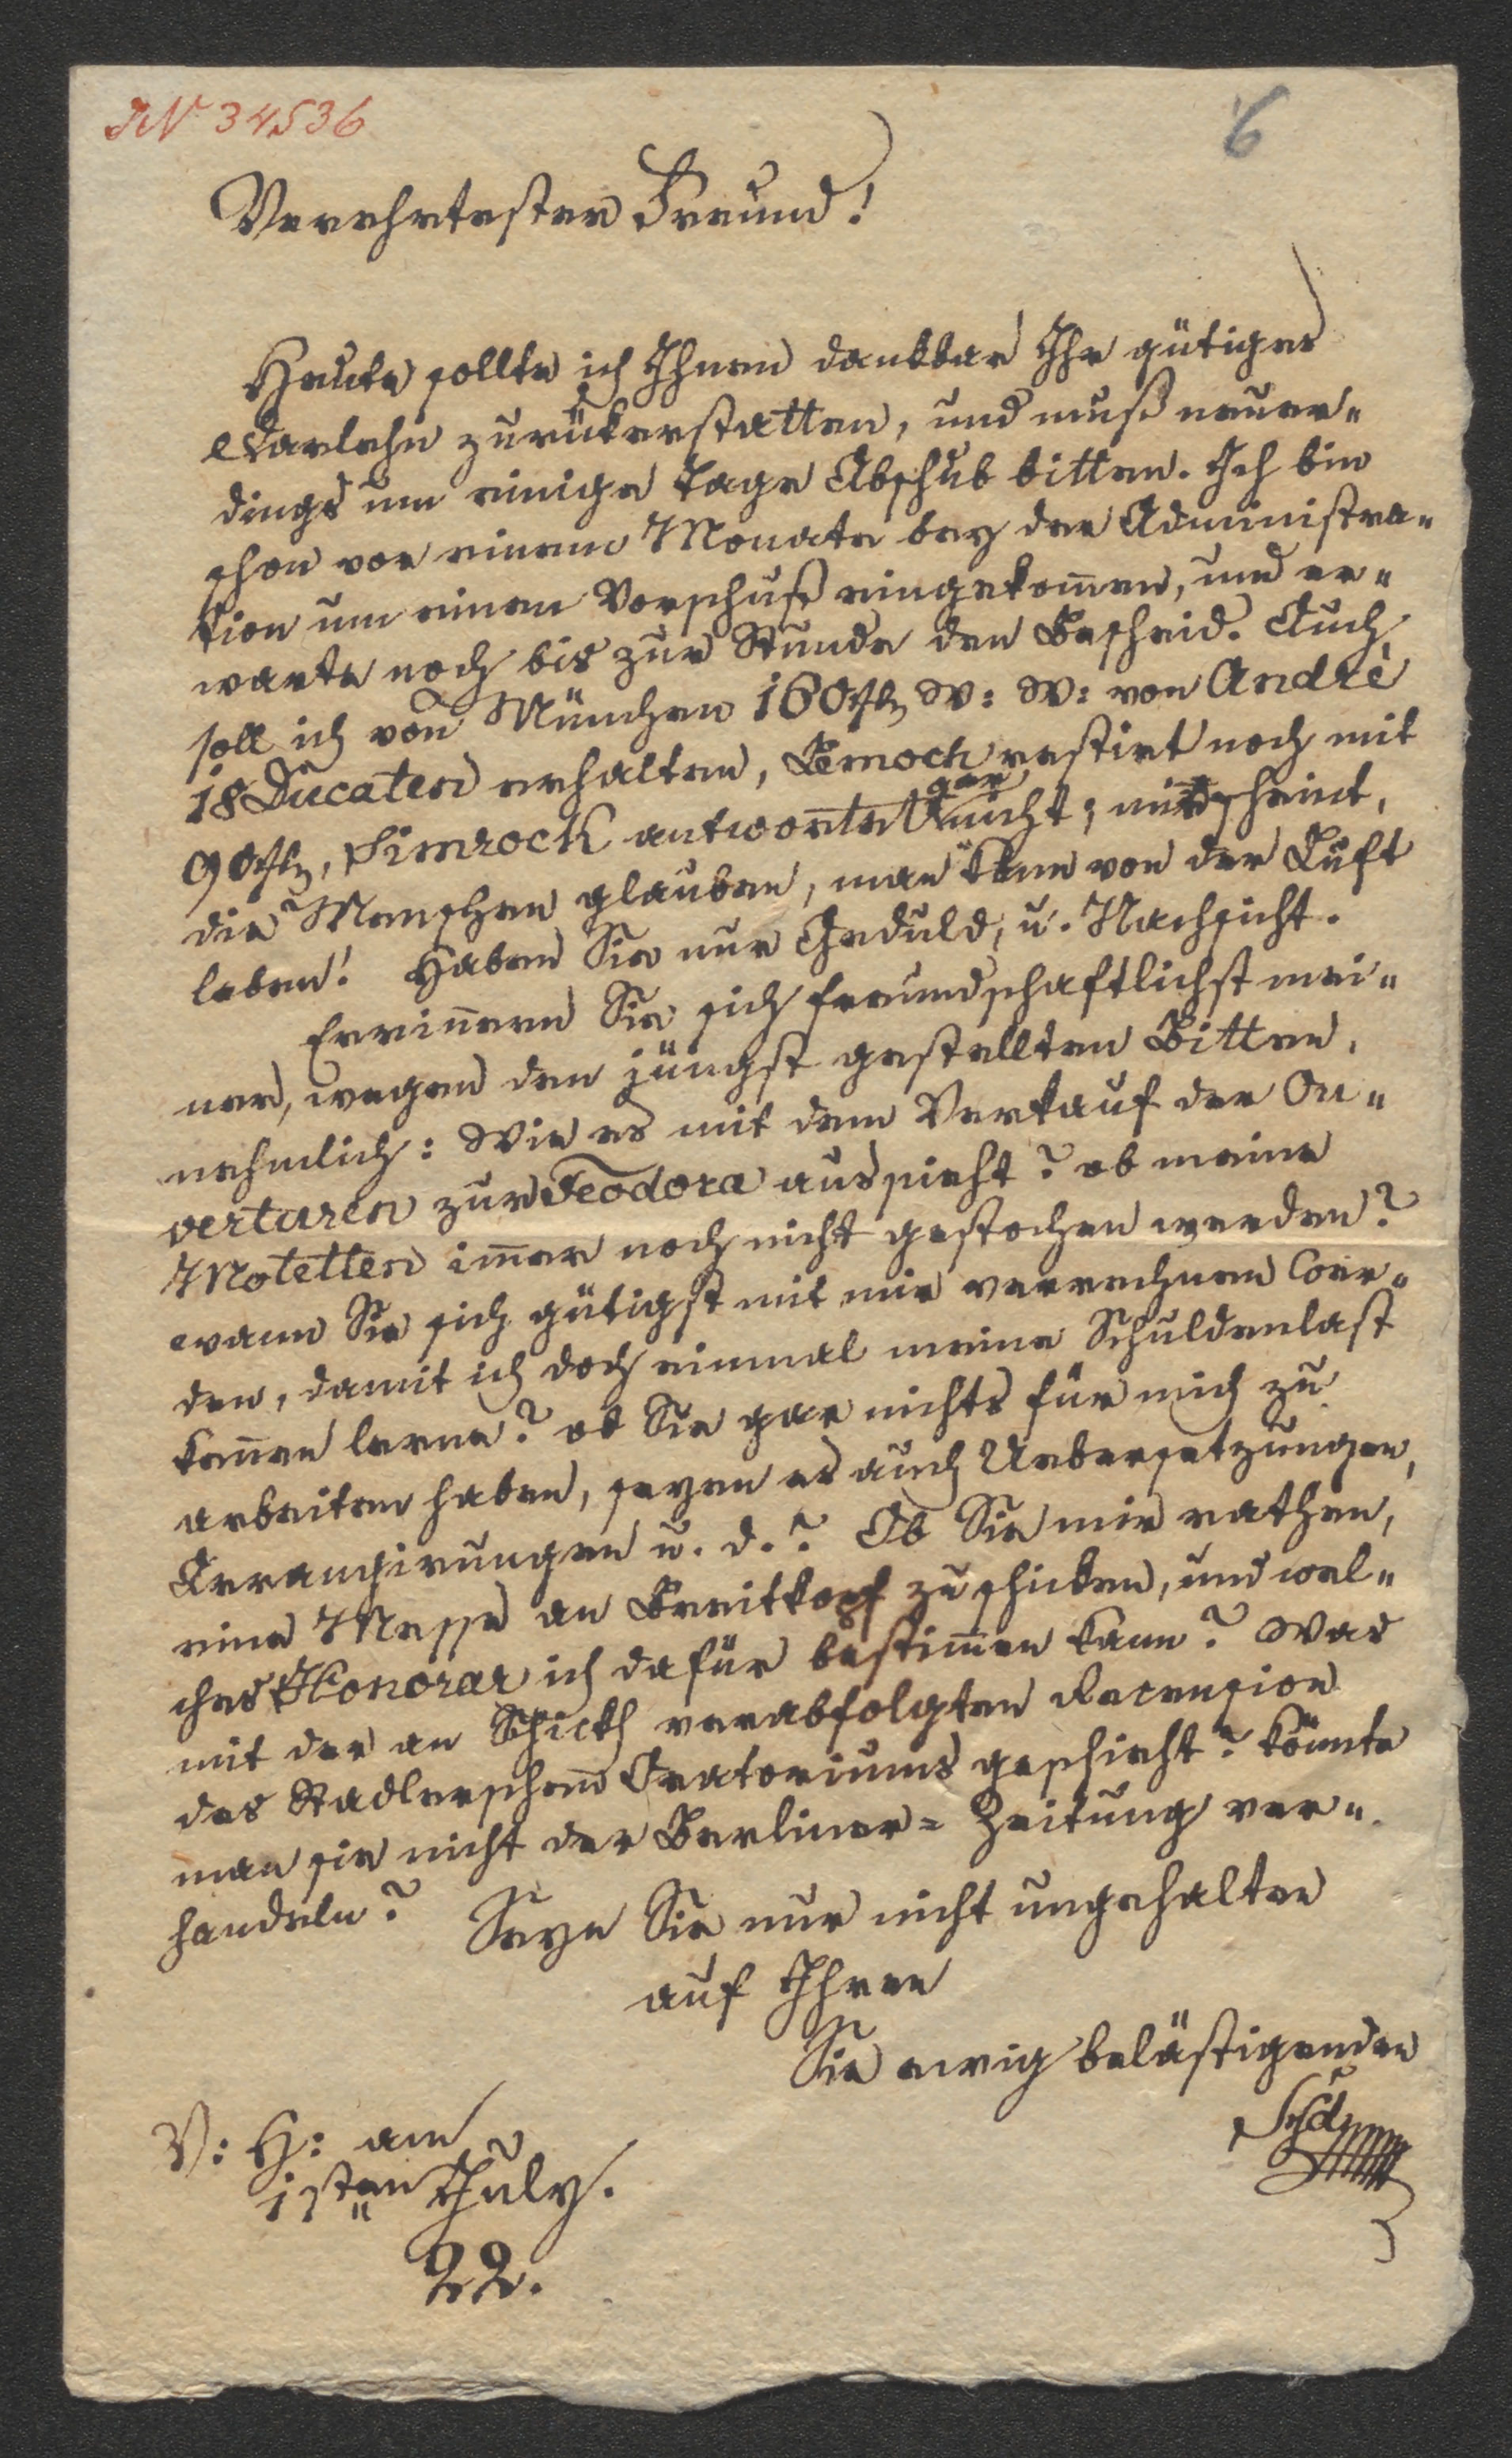 JN 34536
6
Verehrtester Freund!
Heute sollte ich Ihnen dankbar Ihr gütiges
Darlehn zurückerstatten, und muß neuer=
dings um einige Tage Abschub bitten. Ich bin
schon vor einem Monate bey der Administra=
tion um einen Vorschuß eingekom̄en, und er=
warte noch bis zur Stunde den Bescheid. Auch
soll ich von München 160 fl W: W: von André
18 Ducaten erhalten, Lemoch restirt noch mit
90 fl, Simrock antwortet gar nicht; mir scheint,
die Menschen glauben, man kön̄e von der Luft
leben! Haben Sie nur Geduld, u. Nachsicht.
Errin̄ern Sie sich freundschaftlichst mei=
ner, wegen den jüngst gestellten Bitten,
nehmlich: Wie es mit dem Verkauf der Ou=
verturen zur Feodora aussieht? ob meine
Motetten im̄er noch nicht gestochen werden?
wann Sie sich gütigst mit mir verrechnen wer=
den, damit ich doch einmal meine Schuldenlast
ken̄en lerne? ob Sie gar nichts für mich zu
arbeiten haben, seyen es auch Uebersetzungen,
Arrangirungen u. d.? Ob Sie mir rathen,
eine Messe an Breitkopf zu schicken, und wel=
ches Honorar ich dafür bestim̄en kann? Was
mit der an Schickh verabfolgten Recension
des Stadlerschen Oratoriums geschieht? könnte
man sie nicht der Berliner= Zeitung ver=
handeln? Seyn Sie nur nicht ungehalten
auf Ihren
Sie ewig belästigenden
V: H: am
1sten July.
22.